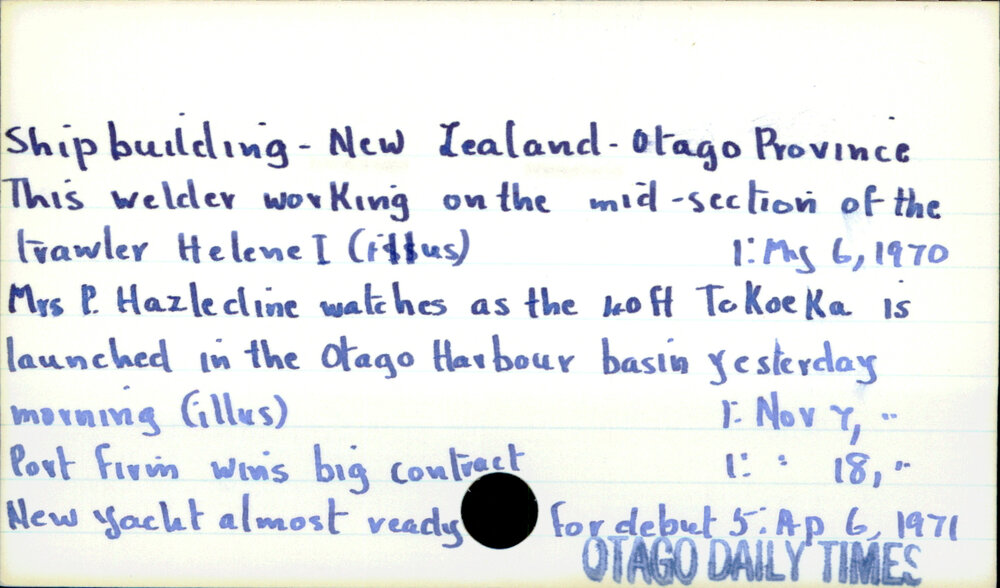 Shipbuilding - New Zealand - Otago Province
This welder working on the mid-section of the
trawler Helene I (illus) 1: My 6, 1970
Mrs P. Hazledine watches as the 40 ft Tokoeka is
launched in the Otago Harbour basin yesterday
morning (illus) 1: Nov 7, "
Port firm wins big contract 1: " 18, "
New yacht almost ready for debut 5: Ap 6, 1971
OTAGO DAILY TIMES